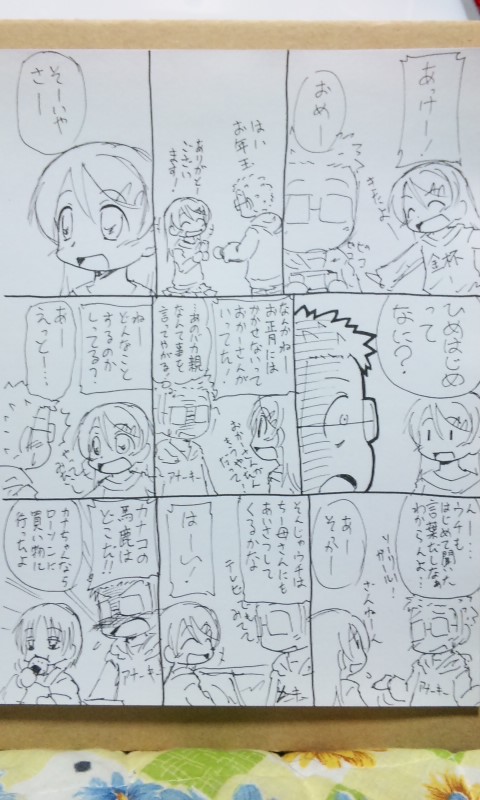 あっけー!
おめー
きたよ
金杯
はい
お年玉
ありがとー
ございます!
そーいや
さー
ひめはじめ
って
なに?
なんかねー
お正月には
かかせないって
おかーさんが
いってた!
あのバカ親
なんて事を
言ってやがる
ねー
どんなこと
するのか
しってる?
あー
えっとー…
アナーキー
んー…
ウチも
はじめて聞いた
言葉だしなぁ
わからんよ…
あー
そかー
アナーキー
そんじゃウチは
ちー母さんにも
あいさつして
くるかなー
テレビ
みてて
はーい!
アナーキー
カナコの
馬鹿は
どこだ!!
カナちゃんなら
ローソンに
買い物に
行ったよ
アナーキー